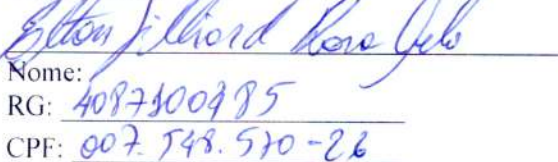 Elton Jilliard Rosa
Nome:
RG: 4087100985
CPF: 007.548.570-26